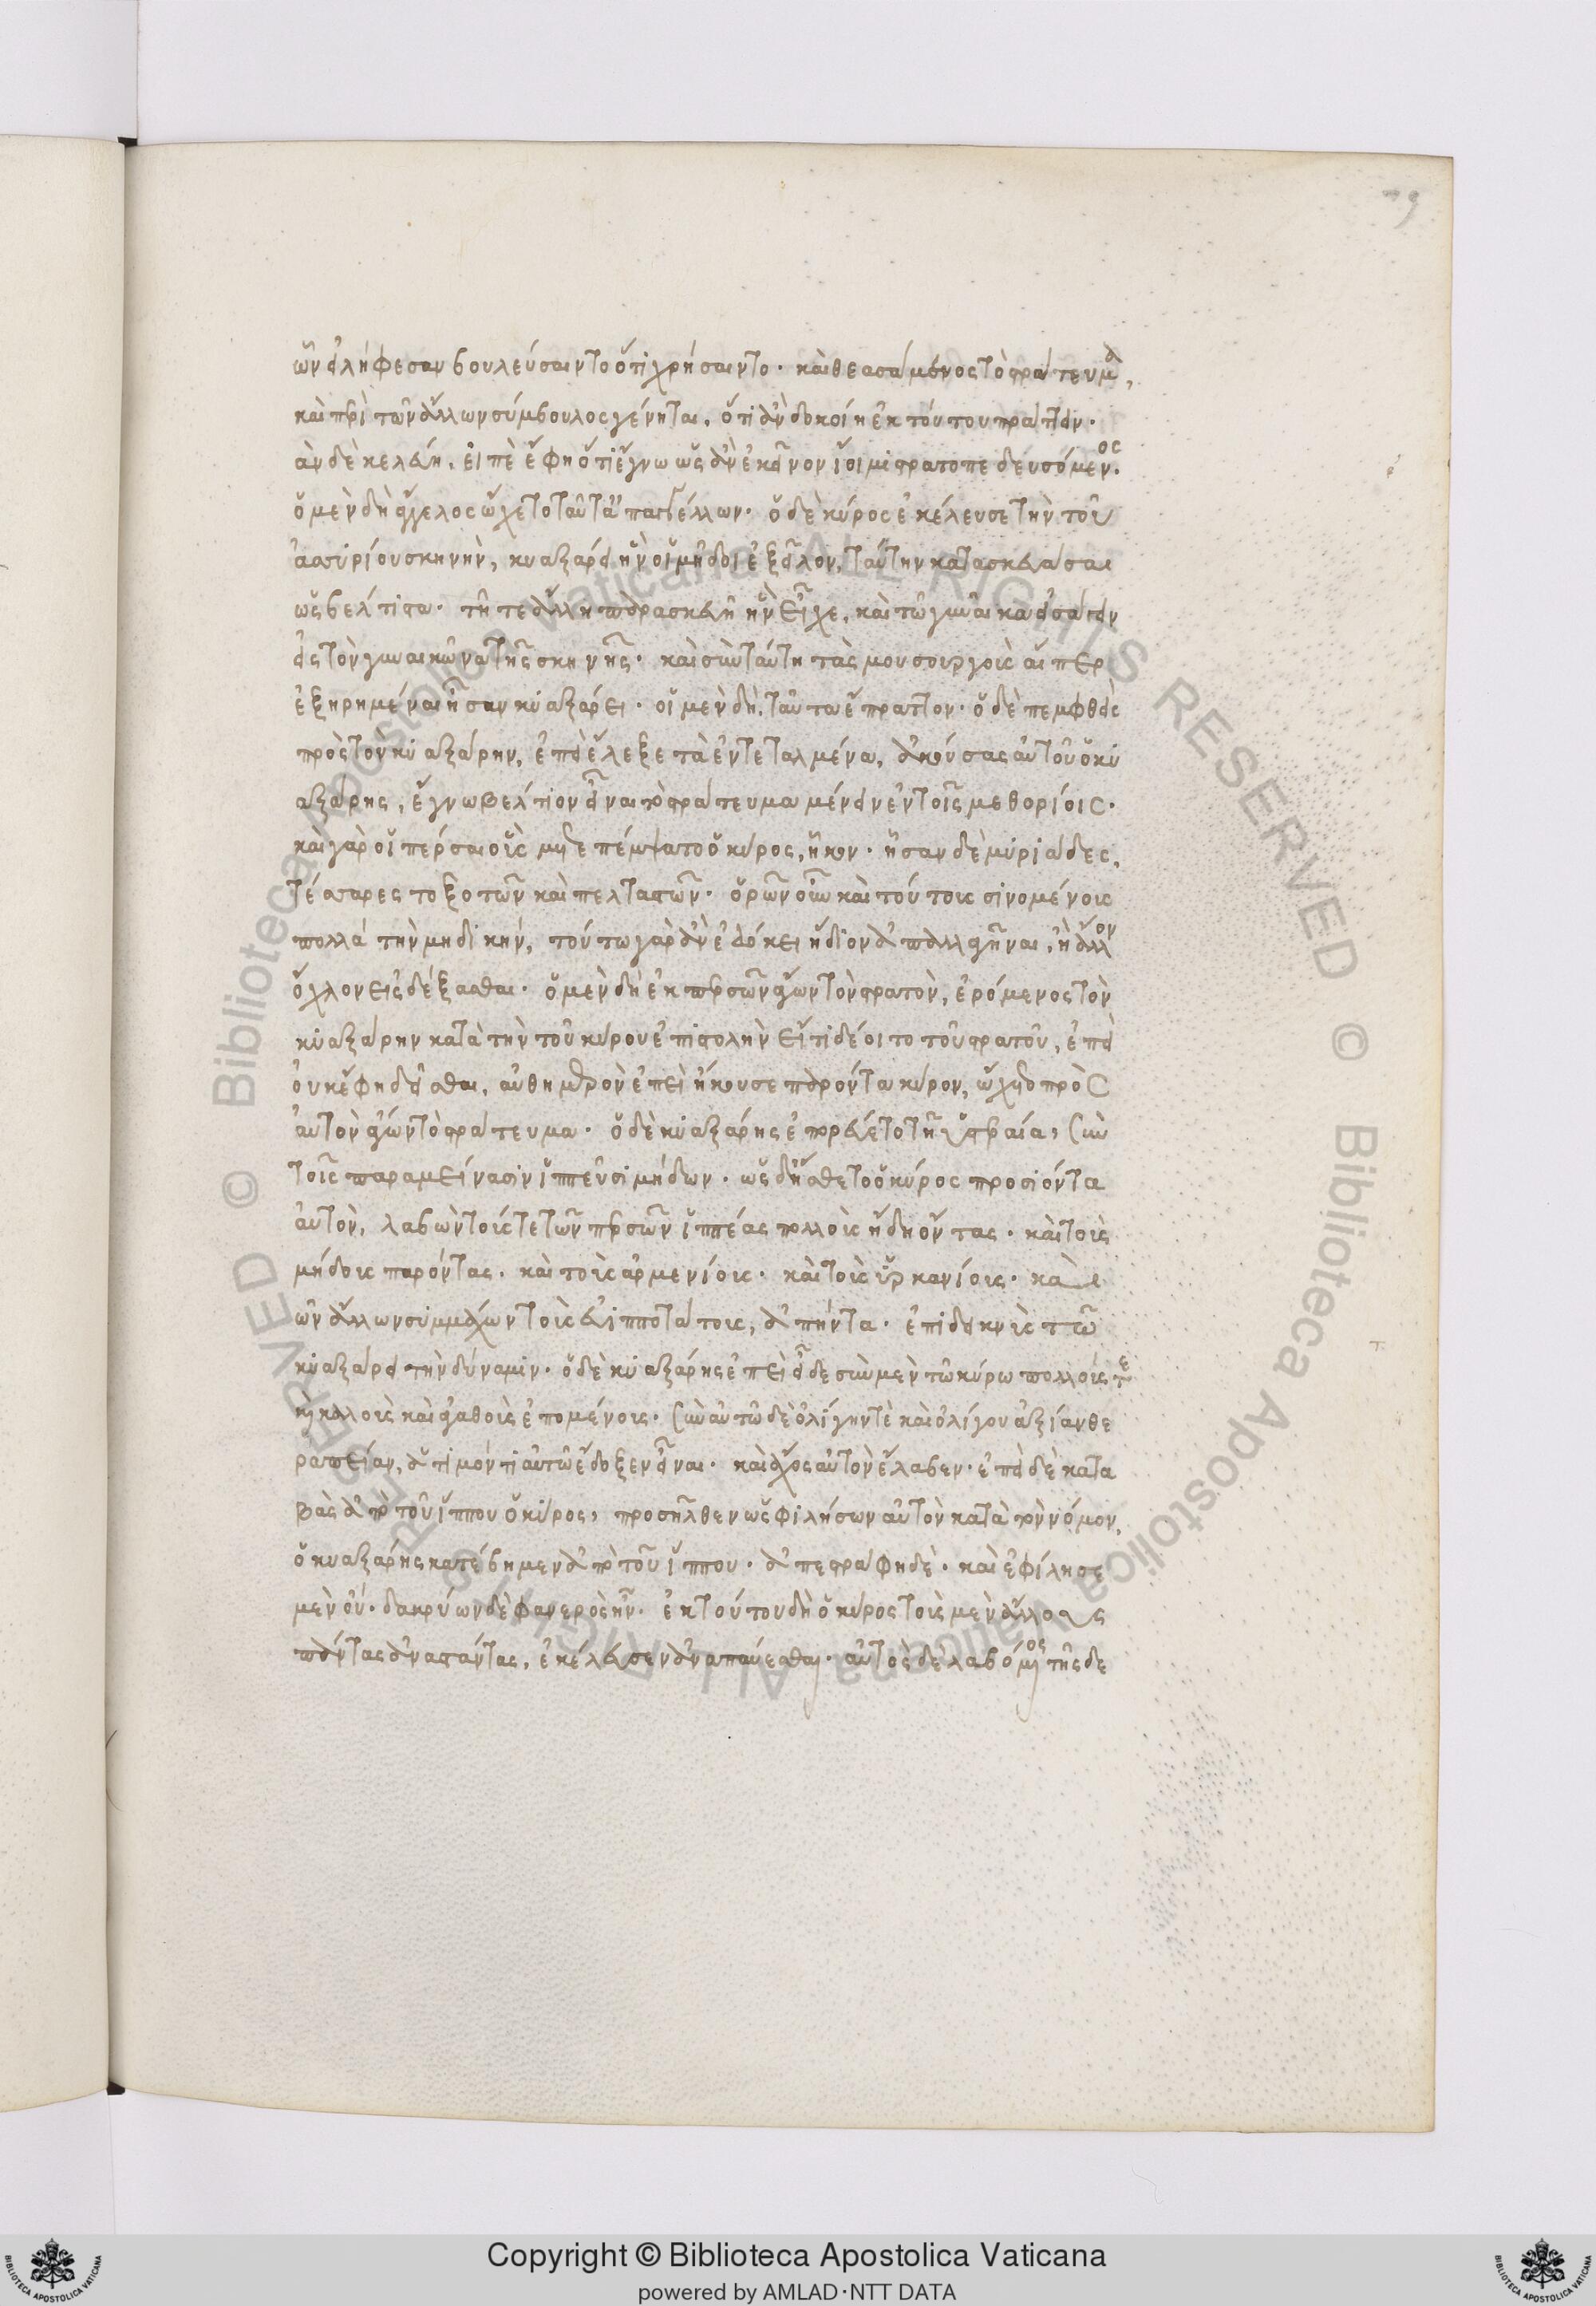 79
ὧν εἰλήφεσαν βουλεύσαιντο ὅ τι χρήσαιντο. καὶ θεασάμενος τὸ στράτευμα,
καὶ περὶ τῶν ἄλλων σύμβουλος γένηται, ὅ τι ἂν δοκοίη ἐκ τούτου πράττειν.
ἂν δὲ κελεύη, εἰπὲ ἔφη ὅτι ἔγνω ὡς ἂν ἐκεῖνον ἴοιμι στρατοπεδευσόμενος.
ὁ μὲν δὴ ἄγγελος ὤχετο ταῦτ' ἀπαγγέλλων. ὁ δὲ κύρος ἐκέλευσε τὴν τοῦ
ἀσσυρίου σκηνὴν, κυαξάρει ἣν οἱ μῆδοι ἐξεῖλον, ταύτην κατασκευάσαι
ὡς βέλτιστα. τῆ τε ἄλλη παρασκευῆ ἣν εἶχε, καὶ τὼ γυναῖκα εἰσάγειν
εἰς τὸν γυναικῶνα τῆς σκηνῆς. καὶ σὺν ταύτη τὰς μουσουργοὺς αἵπερ
ἐξηρημέναι ἦσαν κυαξάρει. οἱ μὲν δὴ, ταῦτα ἔπραττον. ὁ δὲ πεμφθεὶς
πρὸς τὸν κυαξάρην, ἐπεὶ ἔλεξε τὰ ἐντεταλμένα, ἀκούσας αὐτοῦ ὁ κυ
αξάρης, ἔγνω βέλτιον εἶναι τὸ στράτευμα μένειν ἐν τοῖς μεθορίοις.
καὶ γὰρ οἱ πέρσαι οὓς μετεπέμψατο ὁ κύρος, ἧκον. ἦσαν δὲ μυριάδες,
τέσσαρες τοξοτῶν καὶ πελταστῶν. ὁρῶν οὖν καὶ τούτους σινομένους
πολλὰ τὴν μηδικήν, τούτω γὰρ ἂν ἐδόκει ἥδιον ἀπαλλαγῆναι, ἢ ἄλλον
ὄχλον εἰςδέξασθαι. ὁ μὲν δὴ ἐκ περσῶν ἄγων τὸν στρατὸν, ἐρόμενος τὸν
κυαξάρην κατὰ τὴν τοῦ κύρου ἐπιστολὴν εἴ τι δέοιτο τοῦ στρατοῦ, ἐπεὶ
οὐκ ἔφη δεῖσθαι, αὐθημερὸν ἐπεὶ ἤκουσε παρόντα κύρον, ὤχετο πρὸς
αὐτὸν ἄγων τὸ στράτευμα. ὁ δὲ κυαξάρης ἐπορεύετο τῆ ὑστεραία, σὺν
τοῖς παραμείνασιν ἱππεῦσι μήδων. ὡς δ' ἤσθετο ὁ κύρος προσιόντα
αὐτὸν, λαβὼν τούς τε τῶν περσῶν ἱππέας πολλοὺς ἤδη ὄντας. καὶ τοὺς
μήδους παρόντας. καὶ τοὺς ἀρμενίους. καὶ τοὺς ὑρκανίους. καὶ
ῶν ἄλλων συμμάχων τοὺς εὐιπποτάτους, ἀπήντα. ἐπιδεικνὺς τῶ
κυαξάρει τὴν δύναμιν. ὁ δὲ κυαξάρης ἐπεὶ εἶδε σὺν μὲν τῶ κύρω πολλούς τε
καὶ καλοὺς καὶ ἀγαθοὺς ἑπομένους. σὺν αὐτῶ δὲ ὀλίγην τὲ καὶ ὀλίγου ἀξίαν θε
ραπείαν, ἄτιμόν τι αὐτῶ ἔδοξεν εἶναι. καὶ ἄχος αὐτὸν ἔλαβεν. ἐπεὶ δὲ κατα
βὰς ἀπὸ τοῦ ἵππου ὁ κύρος, προσῆλθεν ὡς φιλήσων αὐτὸν κατὰ τὸν νόμον,
ὁ κυαξάρης κατέβη μεν ἀπὸ τοῦ ἵππου. ἀπεστράφη δὲ. καὶ ἐφίλησε
μὲν οὔ. δακρύων δὲ φανερὸς ἦν. ἐκ τούτου δὴ ὁ κύρος τοὺς μὲν ἄλλους
πάντας ἀναστάντας, ἐκέλευσεν ἀναπαύεσθαι. αὐτὸς δὲ λαβόμενος τῆς δε
Copyright © Biblioteca Apostolica Vaticana
powered by AMLAD·NTT DATA